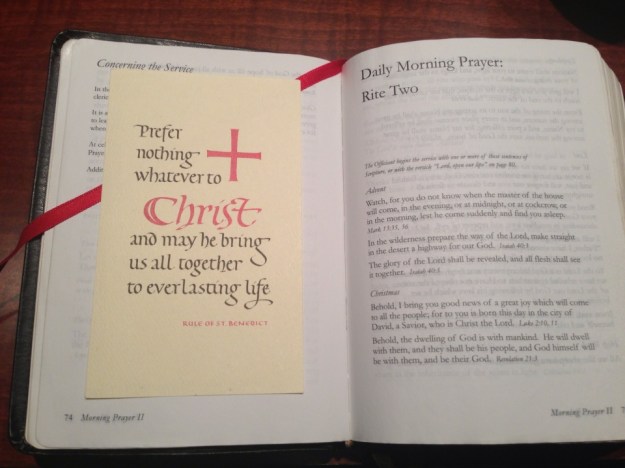 Concerning the Service
In the
It is a
to lea
Addi
Prefer
nothing
whatever to
Christ
and may he bring
us all together
to everlasting life
RULE OF ST. BENEDICT
74 Morning Prayer II
Daily Morning Prayer:
Rite Two
The Officiant begins the service with one or more of these sentences of
Scripture, or with the versicle "Lord, open our lips" on page 80.
Advent
Watch, for you do not know when the master of the house
will come, in the evening, or at midnight, or at cockcrow, or
in the morning, lest he come suddenly and find you asleep.
Mark 13:35, 36
In the wilderness prepare the way of the Lord, make straight
in the desert a highway for our God. Isaiah 40:3
The glory of the Lord shall be revealed, and all flesh shall see
it together. Isaiah 40:5
Christmas
Behold, I bring you good news of a great joy which will come
to all the people; for to you is born this day in the city of
David, a Savior, who is Christ the Lord. Luke 2:10, 11
Behold, the dwelling of God is with mankind. He will dwell
with them, and they shall be his people, and God himself will
be with them, and be their God. Revelation 21:3
Morning Prayer II